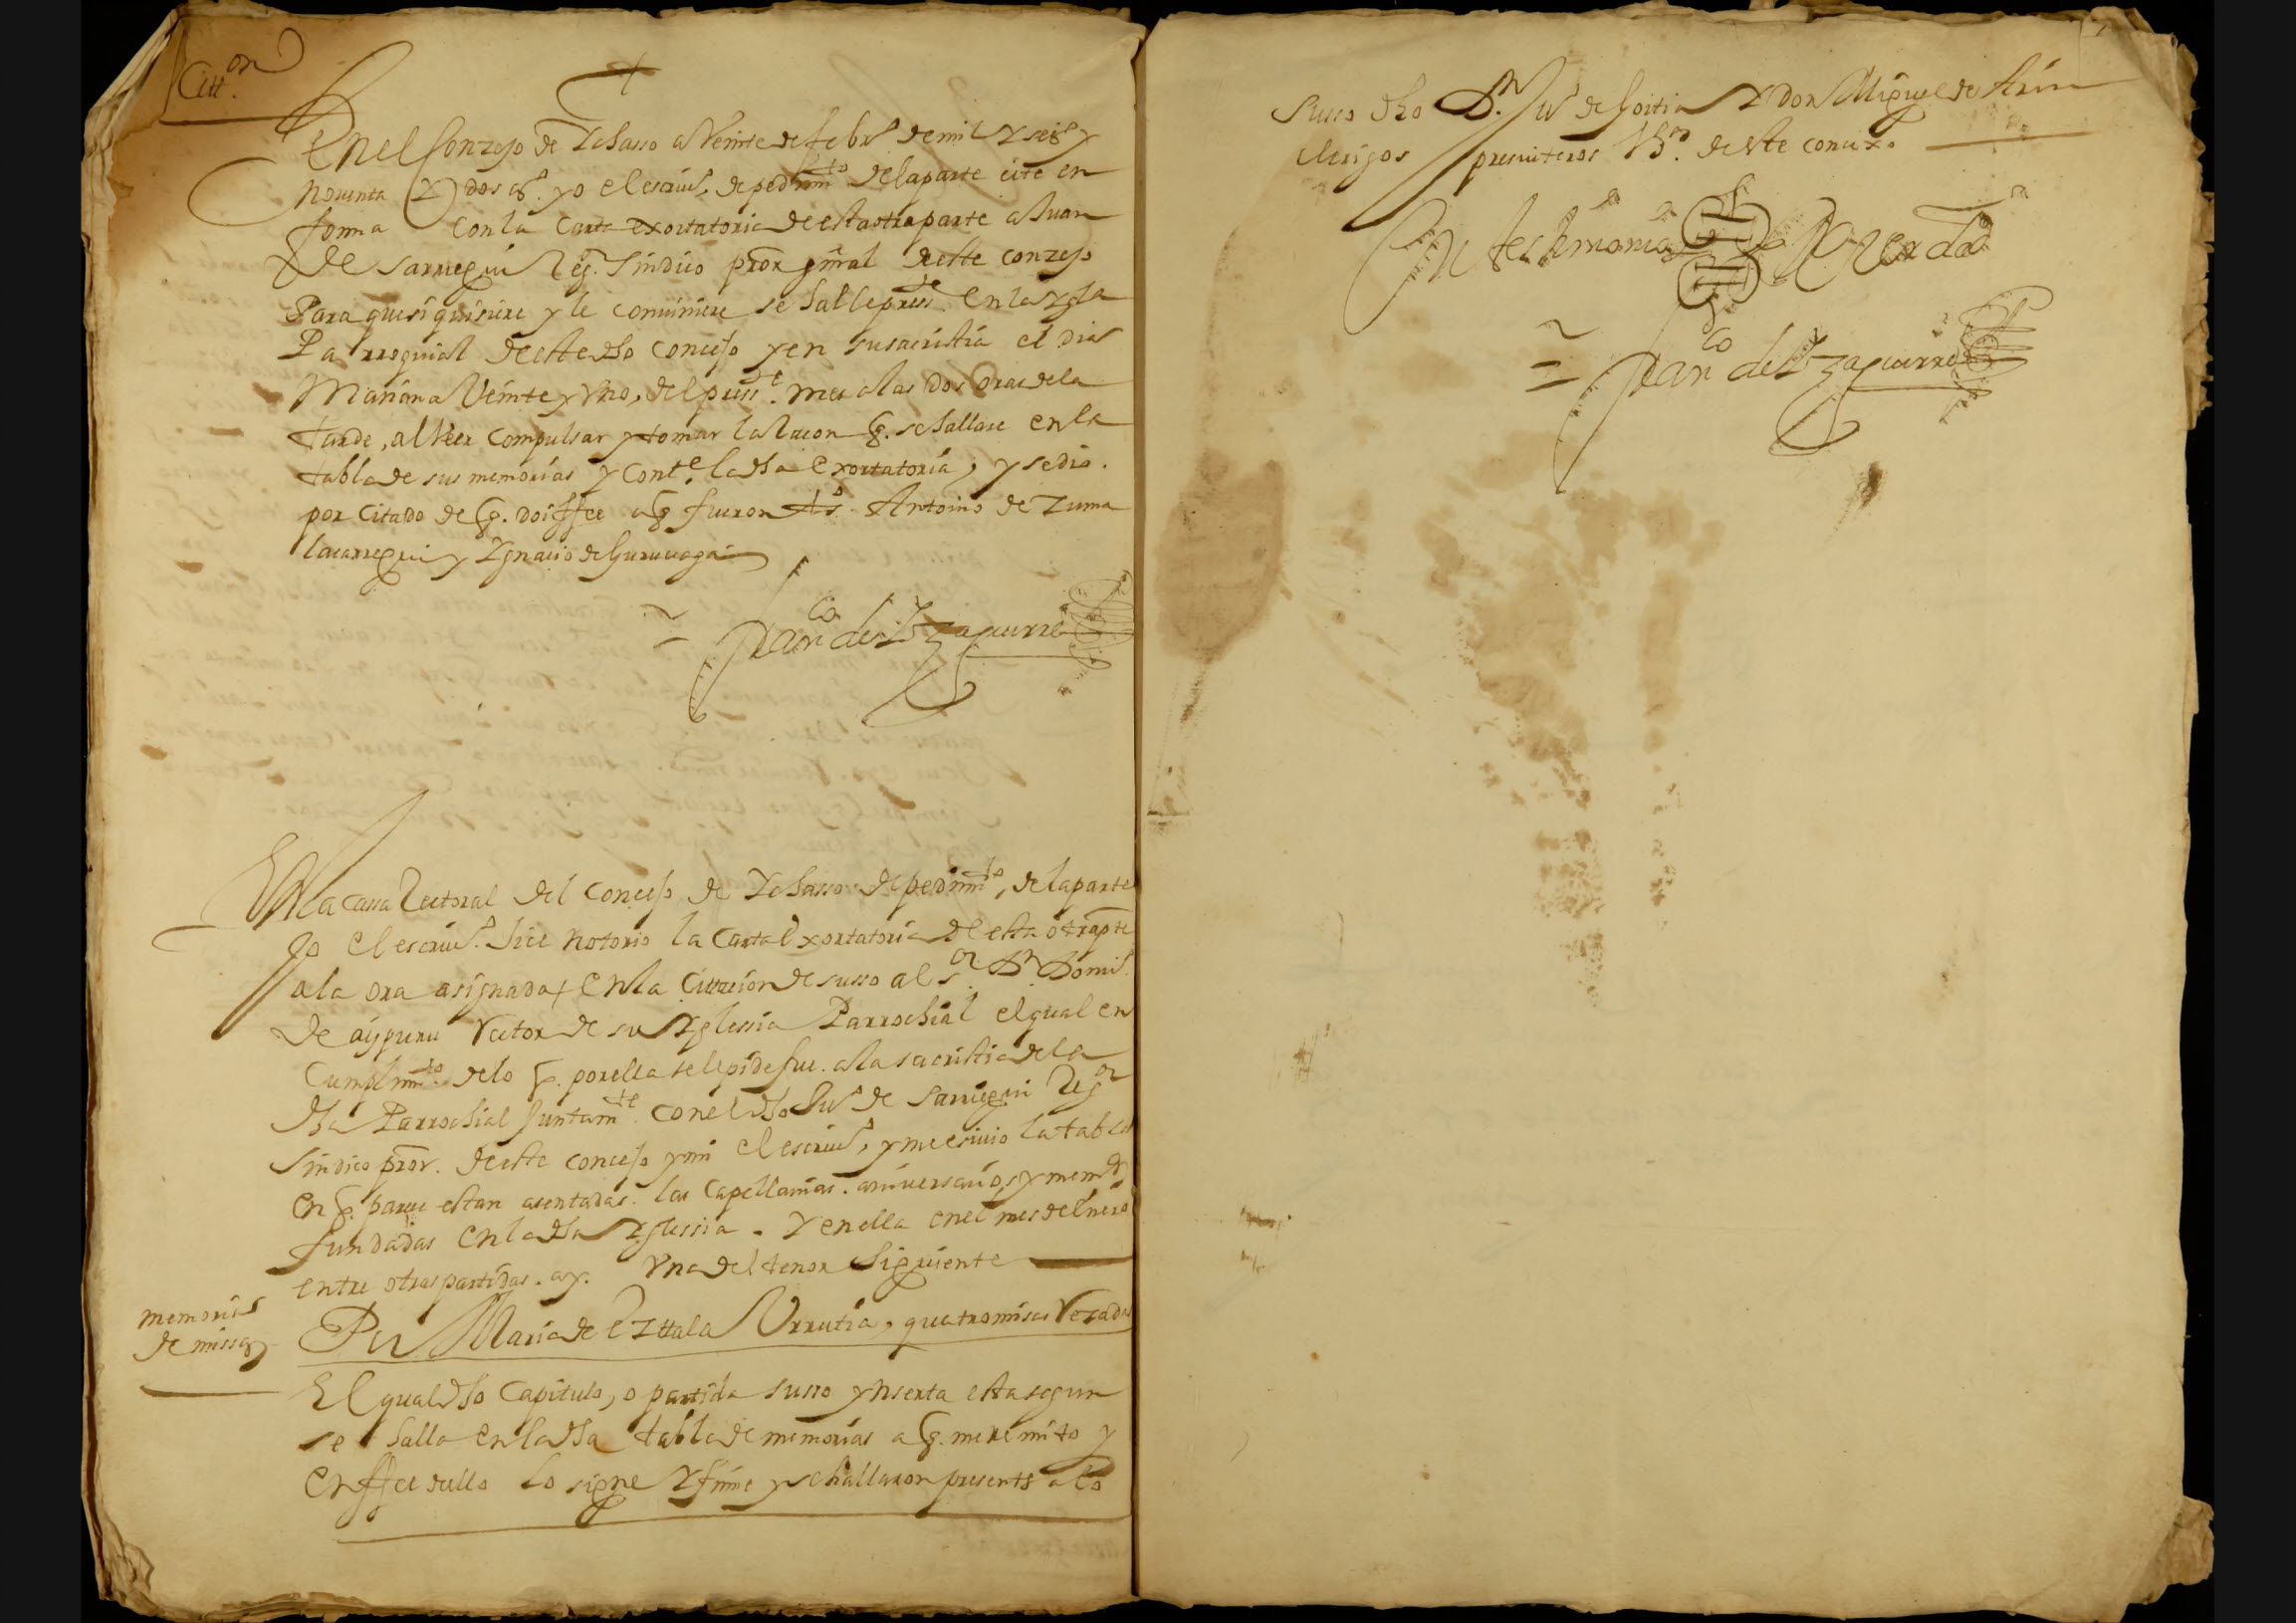 Citt.on
En el Conzejo de Ichasso a Veinte de febr.o de mil y seis.s y
noventa y dos a.s yo el escriu.o de pedim.to de la parte cite en
forma con la carta exortatoria de esta otra parte a Juan
de Sarriegui Reg.or sindico pror gnral deste conzejo
Para que si quisiere y le conuiniere se halle press.te en la Ygla
Parroquial de este dho concejo y en su sacristia el dia
Mañana Veinte y Vno, del press.te mes a las dos oras de la
tarde, al Veer compulsar y tomar la Racon q. se hallare en la
tabla de sus memorias y cont.e la dha exortatoria, y se dio
por citado de q. doi ffee a q fueron t.os Antonio de Zuma
lacarregui y Ygnacio de Guruceaga
Fran.co de Yzaguirre
En la cassa Rectoral del concejo de Ichasso de pedim.to de la parte
Yo el escriu.o hice notorio la carta exortatoria de esta otra pte
a la ora asignada en la Cittacion de susso al s.or D.n Domi.o
de ayguru Rector de su Yglessia Parrochial el qual en
Cumplim.to de lo q. por ella se le pide fue a la sacristia de la
dha Parrochial Juntam.te con el dho Ju.o de Sarriegui Reg.or
sindico pror. de este concejo y mi el escriu.o, y me exiuio la tabla
en q. parece estan asentadas las Capellanias. aniuersarios y mem.as
fundadas en la dha Yglessia. Y en ella en el mes de Enero
entre otras partidas. ay. Vna del tenor Siguiente
memorias
de missas
Por Maria de Ezttala Urrutia, quatro misas Rezadas
El qual dho Capitulo, o partida susso ynserta esta segun
se halla en la dha tabla de memorias a q. me remito y
en ffee dello lo signe Y firme y se hallaron presentes a lo
Suso dho D.n Ju.o de Goitia Y Don Miguel de Arin
clerigos presuiteros V.os de este concexo
En testimonio de Verdad
Fran.co de Yzaguirre